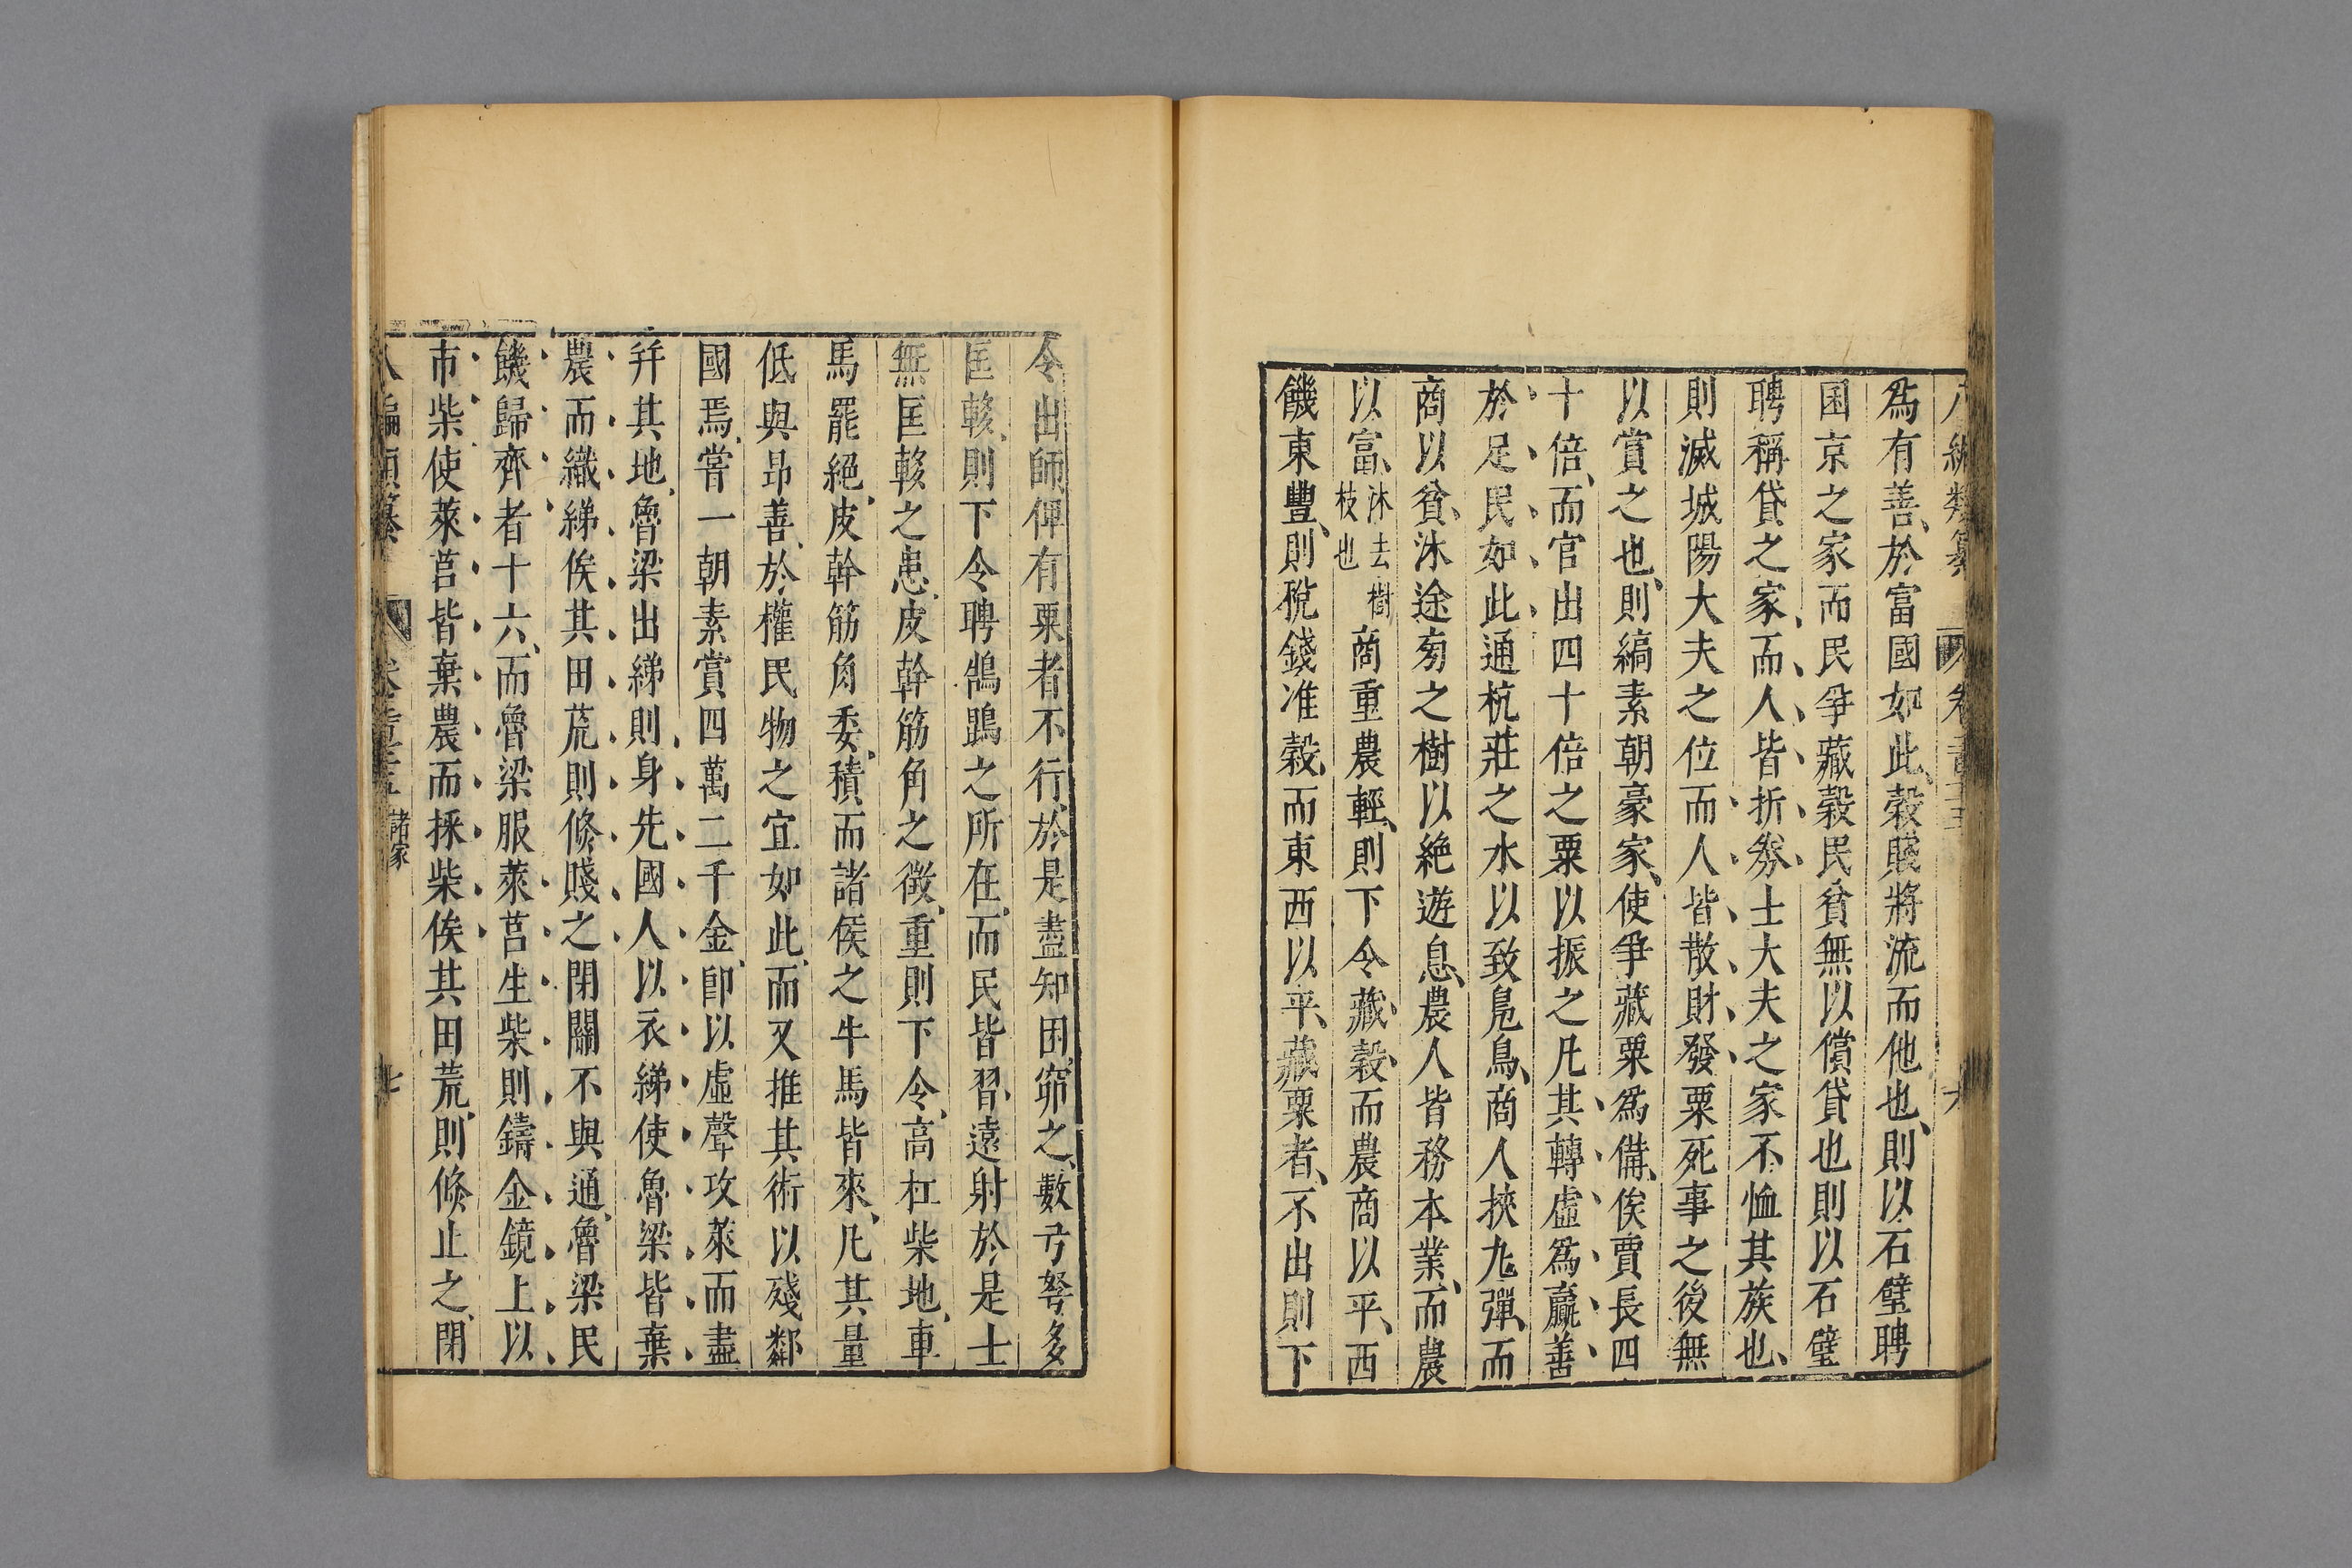 八編類纂 卷
爲有善於富國如此穀賤將流而他也則以石璧聘
囷京之家而民爭藏穀民貧無以償貸也則以石璧
聘稱貸之家而人皆折券士大夫之家不恤其族也
則滅城陽大夫之位而人皆散財發粟死事之後無
以賞之也則縞素朝豪家使爭藏粟爲備俟賈長四
十倍而官出四十倍之粟以振之凡其轉虛爲贏善
於足民如此通杭莊之水以致鳧鳥商人挾九彈而
商以貧沐途旁之樹以絶遊息農人皆務本業而農
以富沐去樹枝也商重農輕則下令藏穀而農商以平西
饑東豐則稅錢准穀而東西以平藏粟者不出則下
令出師俾有粟者不行於是盡知囷窌之數弓弩多
匡𨍏則下令聘鵠鵾之所在而民皆習遠射於是士
無匡𨍏之患皮幹筋角之徵重則下令高杠柴地車
馬罷絕皮幹筋角委積而諸侯之牛馬皆來凡其量
低與昂善於權民物之宜如此而又推其術以殘鄰
國焉嘗一朝素賞四萬二千金卽以虛聲攻萊而盡
幷其地魯梁出綈則身先國人以衣綈使魯梁皆棄
農而織綈俟其田荒則倐賤之閉關不與通魯梁民
饑歸齊者十六而魯梁服萊莒生柴則鑄金鏡上以
市柴使萊莒皆棄農而採柴俟其田荒則倐止之閉
八編類纂 卷 諸家 七